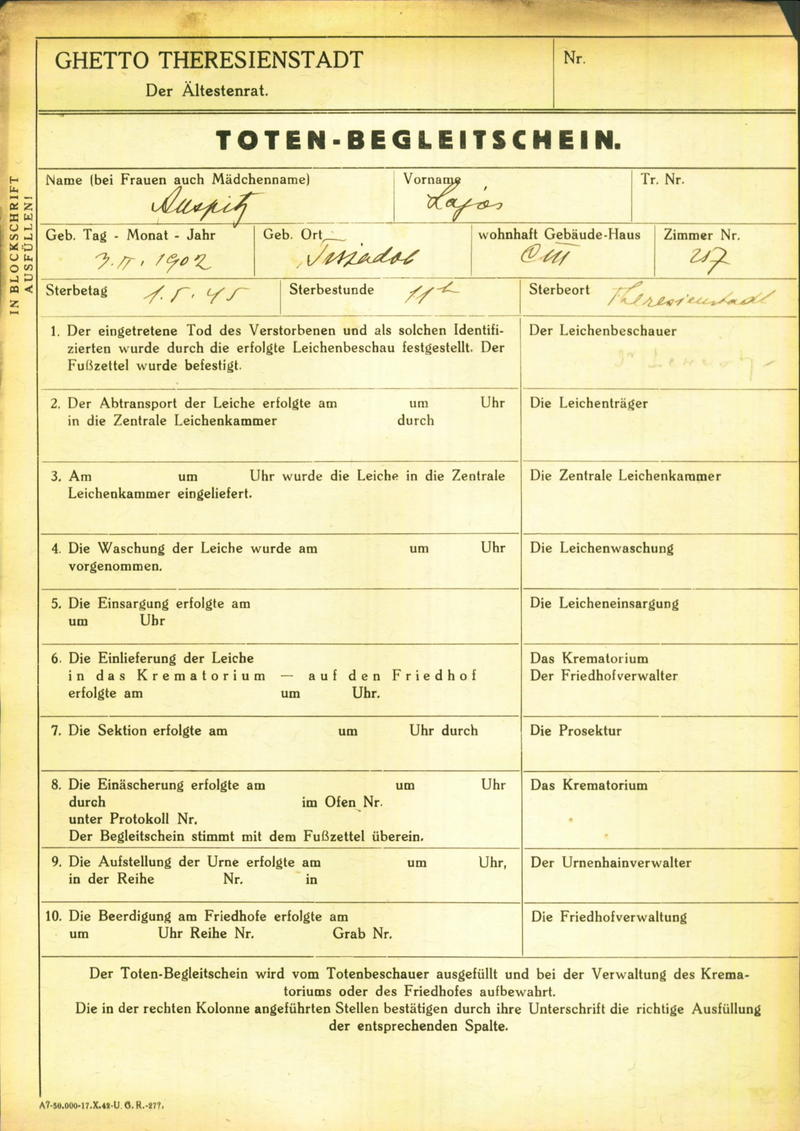 GHETTO THERESIENSTADT
Der Ältestenrat.
Nr.
TOTEN-BEGLEITSCHEIN.
IN BLOCKSCHRIFT
AUSFÜLLEN!
Name (bei Frauen auch Mädchenname)
Auspitz
Vorname
Lajos
Tr. Nr.
Geb. Tag - Monat - Jahr
3. II. 1902
Geb. Ort
Tiszadob
wohnhaft Gebäude-Haus
C III
Zimmer Nr.
217
Sterbetag 1. 5. 45
Sterbestunde 11h
Sterbeort Theresienstadt
1. Der eingetretene Tod des Verstorbenen und als solchen Identifi-
zierten wurde durch die erfolgte Leichenbeschau festgestellt. Der
Fußzettel wurde befestigt.
Der Leichenbeschauer
2. Der Abtransport der Leiche erfolgte am um Uhr
in die Zentrale Leichenkammer durch
Die Leichenträger
3. Am um Uhr wurde die Leiche in die Zentrale
Leichenkammer eingeliefert.
Die Zentrale Leichenkammer
4. Die Waschung der Leiche wurde am um Uhr
vorgenommen.
Die Leichenwaschung
5. Die Einsargung erfolgte am
um Uhr
Die Leicheneinsargung
6. Die Einlieferung der Leiche
in das Krematorium — auf den Friedhof
erfolgte am um Uhr.
Das Krematorium
Der Friedhofverwalter
7. Die Sektion erfolgte am um Uhr durch
Die Prosektur
8. Die Einäscherung erfolgte am um Uhr
durch im Ofen Nr.
unter Protokoll Nr.
Der Begleitschein stimmt mit dem Fußzettel überein.
Das Krematorium
9. Die Aufstellung der Urne erfolgte am um Uhr,
in der Reihe Nr. in
Der Urnenhainverwalter
10. Die Beerdigung am Friedhofe erfolgte am
um Uhr Reihe Nr. Grab Nr.
Die Friedhofverwaltung
Der Toten-Begleitschein wird vom Totenbeschauer ausgefüllt und bei der Verwaltung des Krema-
toriums oder des Friedhofes aufbewahrt.
Die in der rechten Kolonne angeführten Stellen bestätigen durch ihre Unterschrift die richtige Ausfüllung
der entsprechenden Spalte.
A7-50.000-17.X.42-U. G. R.-277.